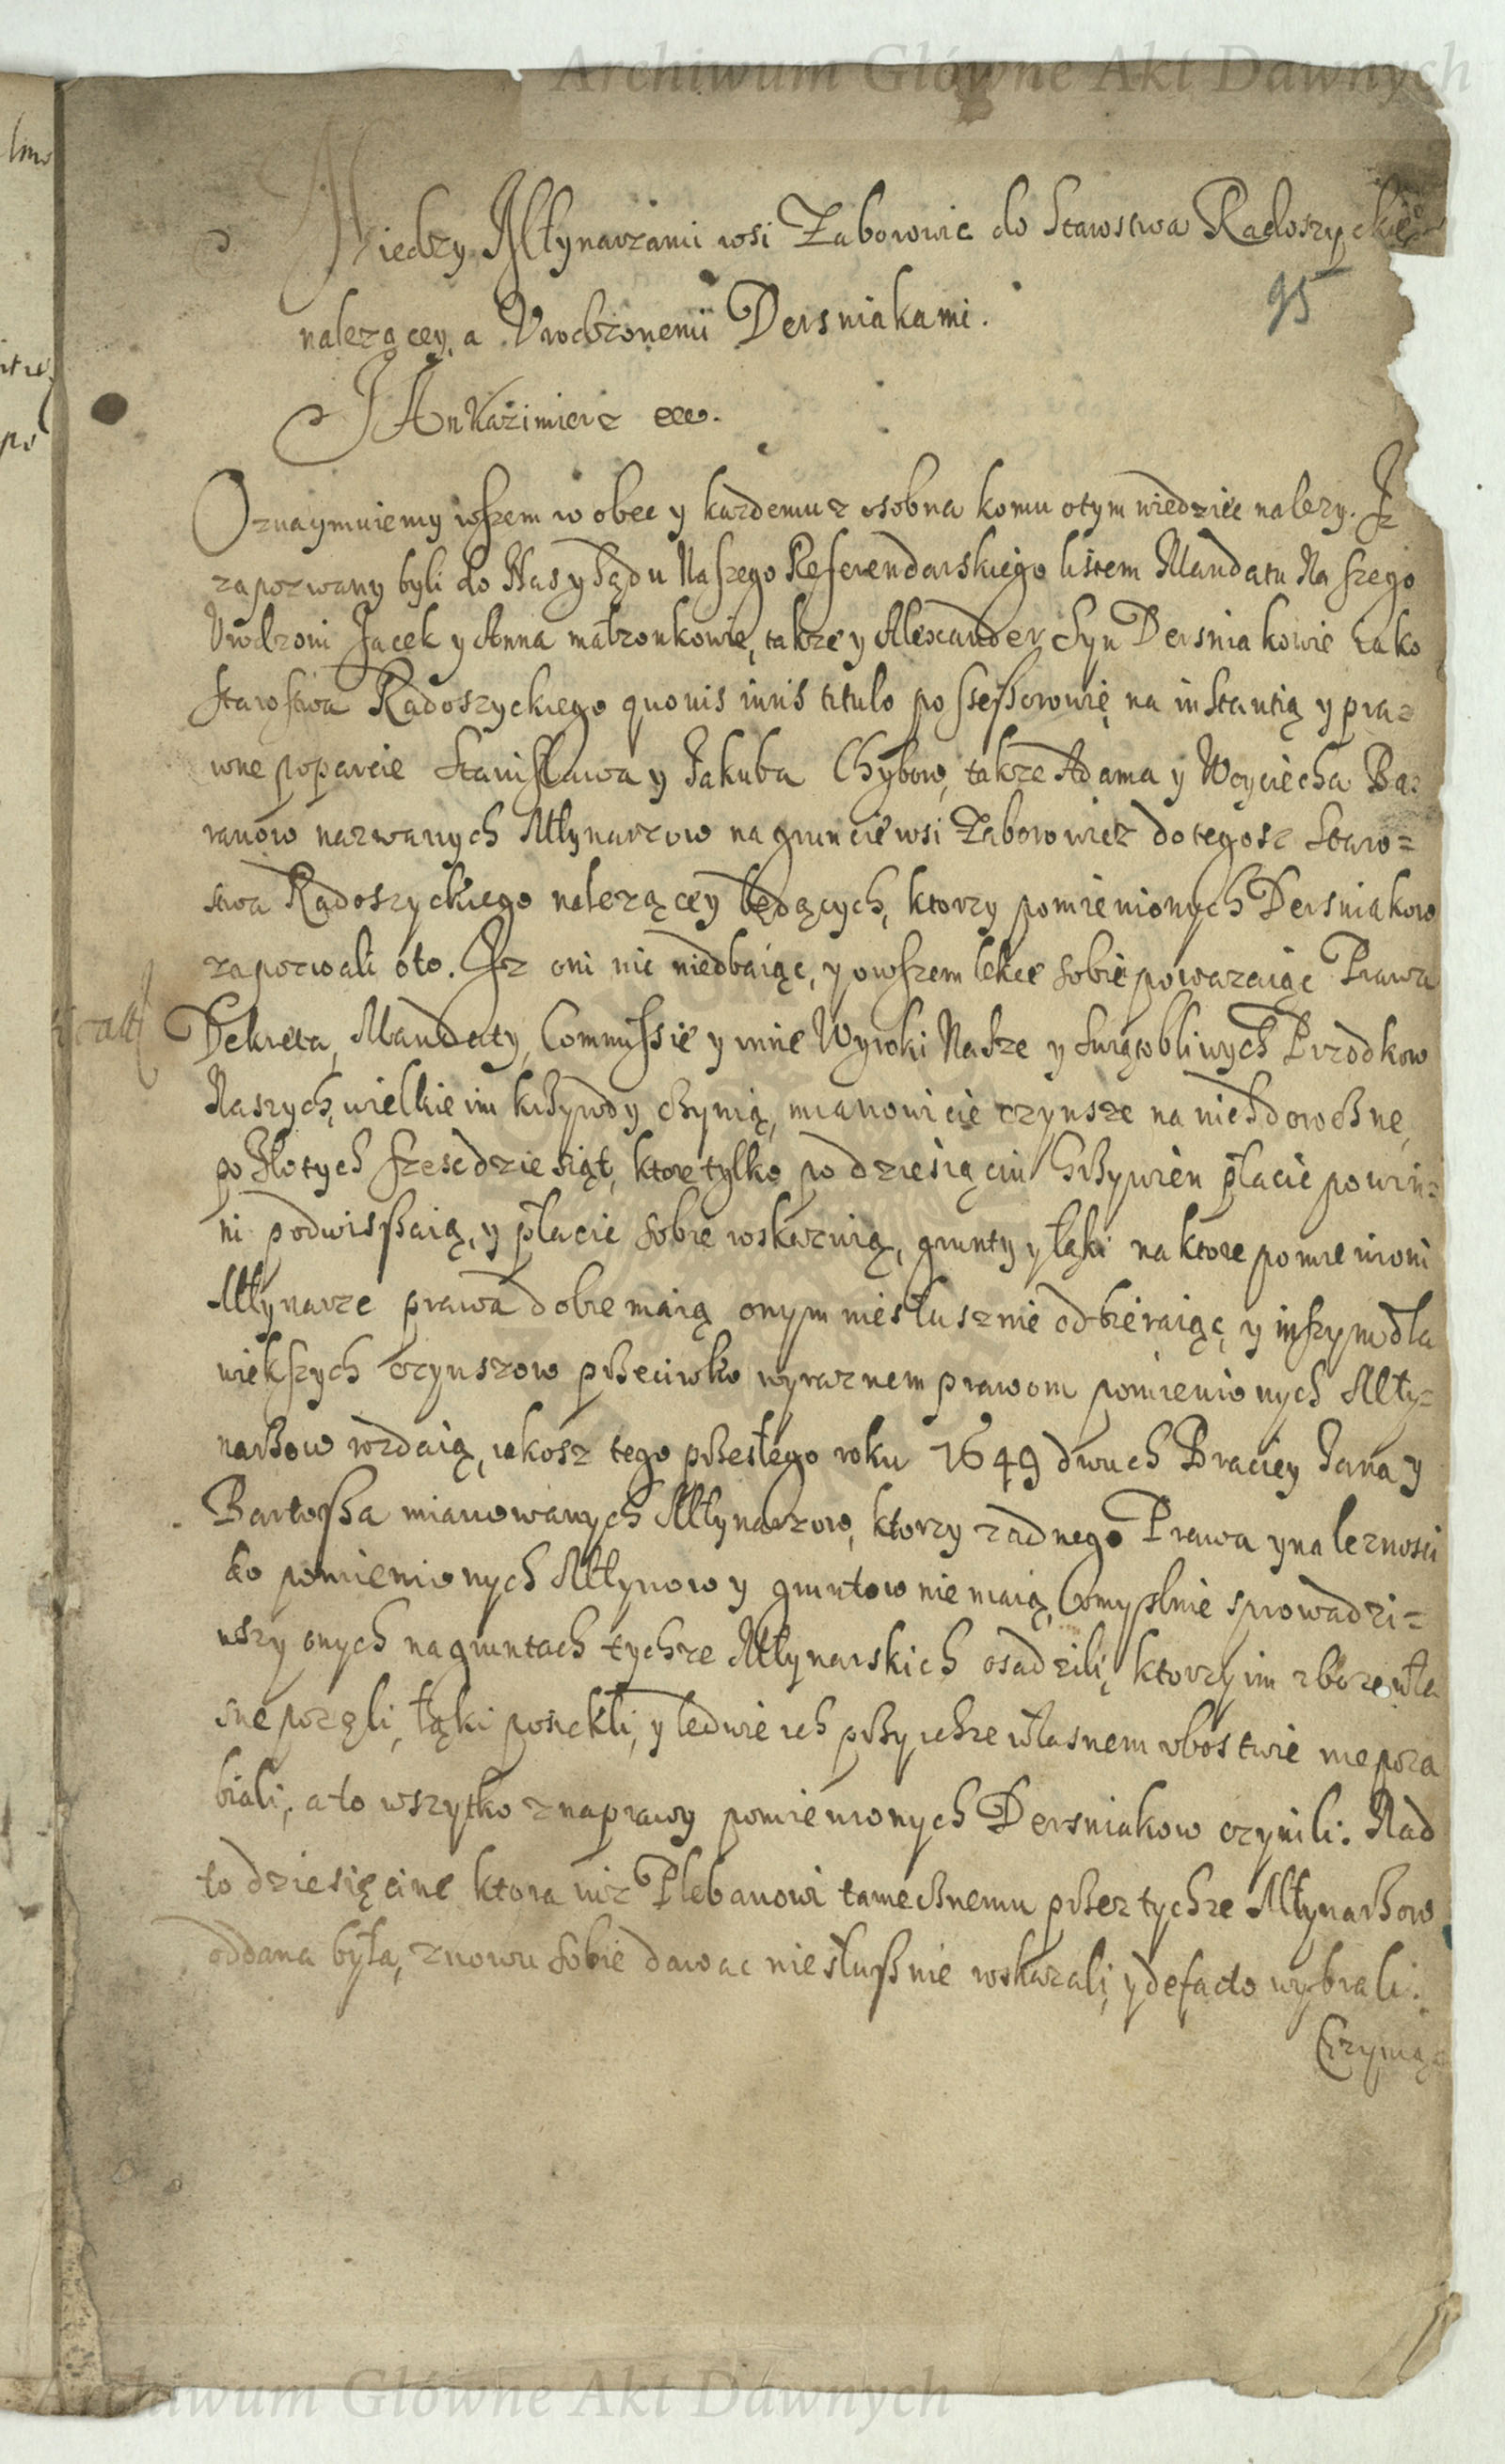 Archiwum Główne Akt Dawnych
Miedzy Młynarzami wsi Zaborowic do Starostwa Radoszyckie°
95
nalezącey, a Vrodzonemi Dersniakami.
JAn Kazimierz etc.
Oznaymuiemy wszem w obec y kazdemu z osobna komu otym wiedziec nalezy. Jz
zapozwany byli do Nas y Sądu Naszego Referendarskiego listem Mandatu Naszego
Vrodzoni Jacek y Anna małzonkowie, takze y Alexander Syn Dersniakowie iako
Starostwa Radoszyckiego quouis iuris titulo possessorowie na instantią y pra=
wne poparcie Stanisława y Jakuba Chybow, takze Adama y Woyciecha Ba=
ranow nazwanych Młynarzow na gruncie wsi Zaborowicz do tegosz Staro=
stwa Radoszyckiego nalezącey będących, ktorzy pomienionych Dersniakow
zapozwali oto. Jz oni nic niedbaiąc, y owszem lekce sobie powazaiąc Prawa
Dekreta, Mandaty, Commissie y inne Wyroki Nasze y Swiątobliwych Przodkow
Naszych, wielkie im krzywdy czynią, mianowicie czynsze na nich doroczne,
po złotych szescdziesiąt, ktore tylko po dziesiąciu Grzywien płacic powin=
ni podwiszaią, y płacic sobie wskazuią, grunty y łąki na ktore pomienioni
Młynarze prawa dobre maią onym niesłusznie odbieraiąc, y inszym dla
wiekszych czynszow przeciwko wyraznem prawom pomienionych Mły=
narzow rozdaią, iakosz tego przeszłego roku 1649 dwuch Braciey Jana y
Bartosza mianowanych Młynarzow, ktorzy zadnego Prawa y naleznosci
do pomienionych Młynow y gruntow nie maią, Comyslnie sprowadzi=
wszy onych na gruntach tychze Młynarskich osadzili, ktorzy im zboze wła
sne pozęli, łąki posiekli, y ledwie ich przy ichze własnem vbostwie nie poza
biiali, a to wszytko z naprawy pomienionych Dersniakow czynili. Nad
to dziesięcine ktora iuz Plebanowi tamecznemu przez tychze Młynarzow
oddana była, znowu sobie dawac niesłusznie wskazali, y defacto wybrali.
Czyniąc
Archiwum Główne Akt Dawnych